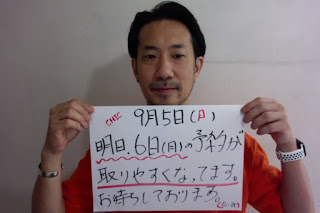 CHIC
9月5日(日)
明日.6日(月)の予約が
取りやすくなってます。
お待ちしております。